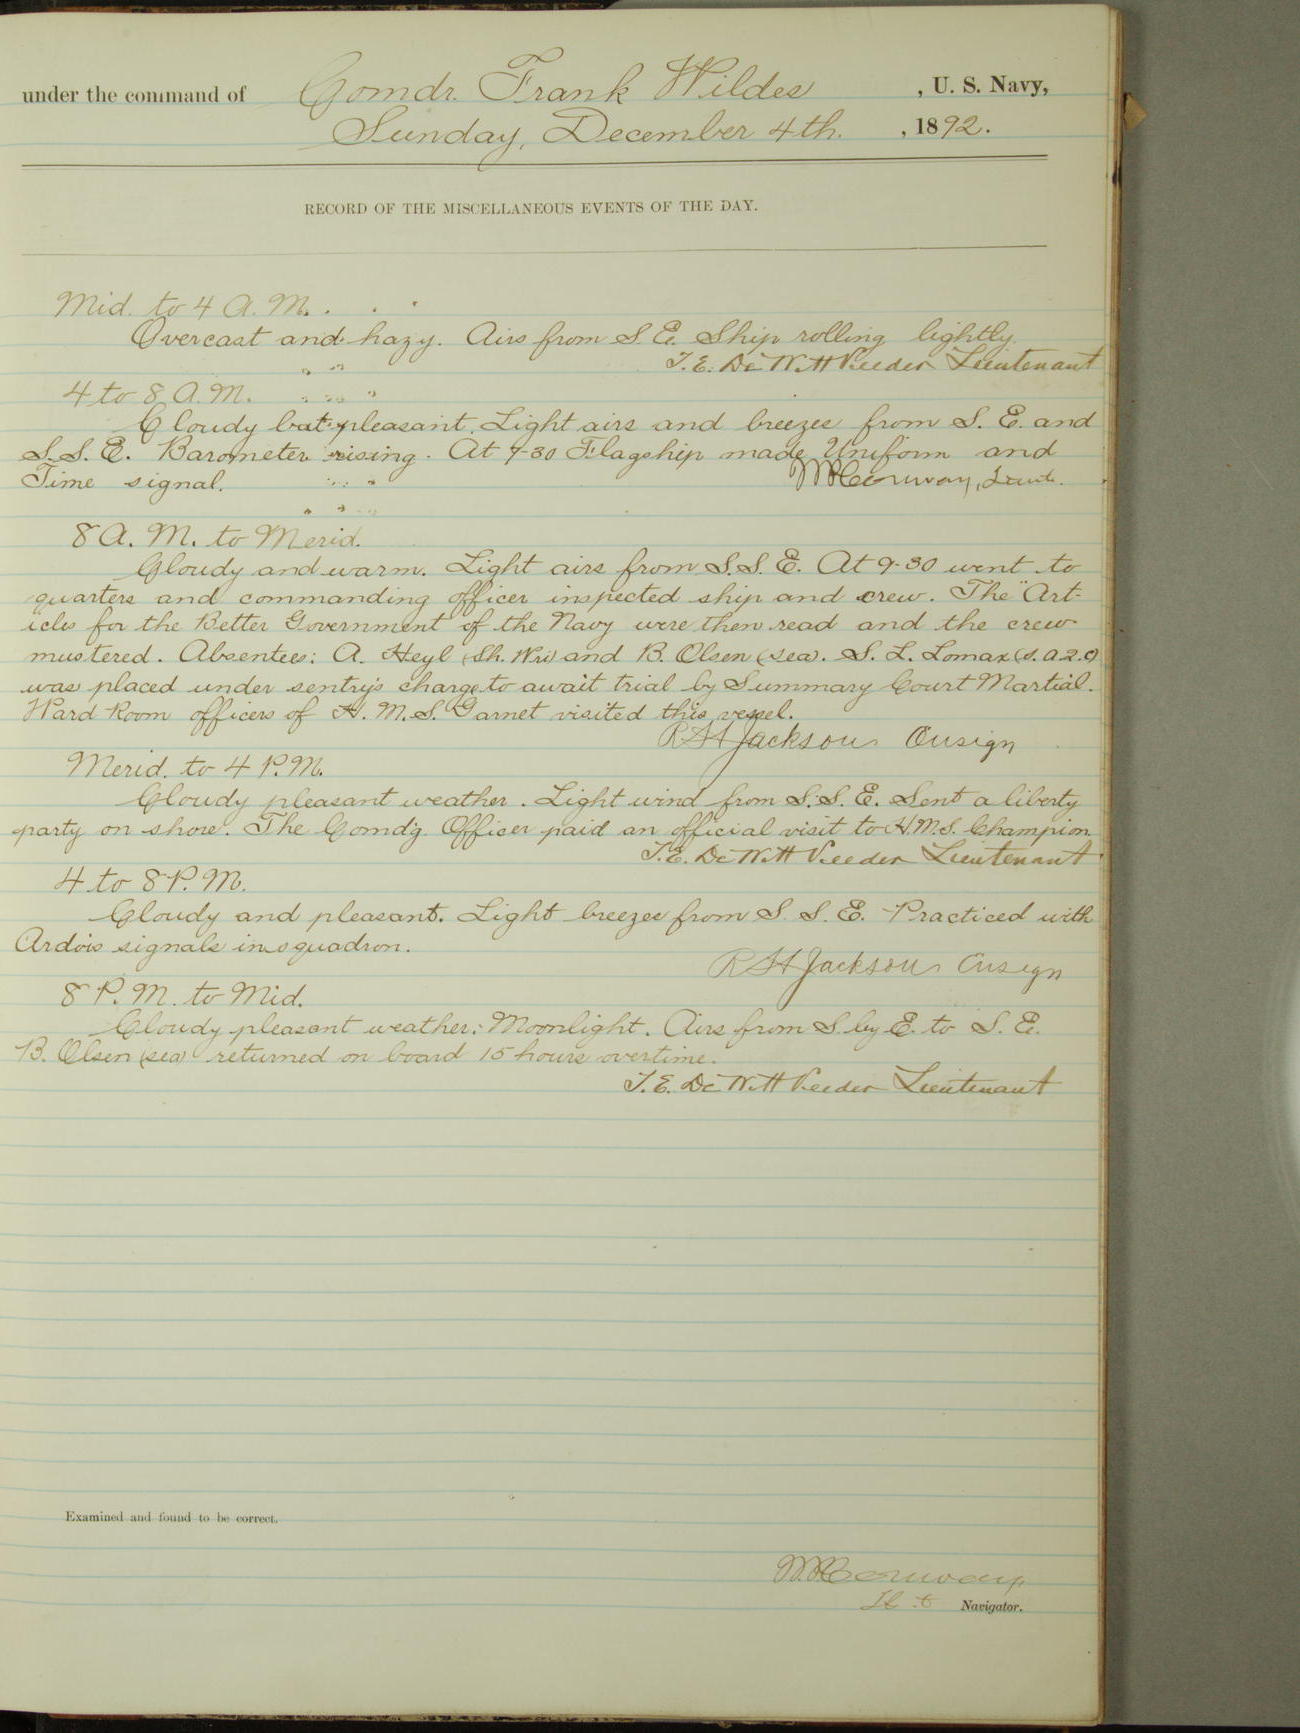 under the command of Comdr. Frank Wildes, U. S. Navy,
Sunday, December 4th., 1892.
RECORD OF THE MISCELLANEOUS EVENTS OF THE DAY.
Mid. to 4 A.M.
Overcast and hazy. Airs from S.E. Ship rolling lightly.
T.E. DeWitt Veeder Lieutenant
4 to 8 A.M.
Cloudy but pleasant. Light airs and breezes from S.E. and
S.S.E. Barometer rising. At 7-30 Flagship made Uniform and
Time signal.
W.P. Conway, Lieut.
8 A.M. to Merid.
Cloudy and warm. Light airs from S.S.E. At 9-30 went to
quarters and commanding officer inspected ship and crew. The "Art-
icles for the Better Government of the Navy were then read and the crew
mustered. Absentees: A. Heyl (Sh. Wri) and B. Olsen (sea). S. L. Lomax (S.a.2.c)
was placed under sentry's charge to await trial by Summary Court Martial.
Ward Room officers of H.M.S. Garnet visited this vessel.
R H Jackson Ensign
Merid. to 4 P.M.
Cloudy pleasant weather. Light wind from S.S.E. Sent a liberty
party on shore. The Comd'g. Officer paid an official visit to H.M.S. Champion
T.E. DeWitt Veeder Lieutenant
4 to 8 P.M.
Cloudy and pleasant. Light breezes from S. S. E. Practiced with
Ardois signals in squadron.
R H Jackson Ensign
8 P.M. to Mid.
Cloudy pleasant weather: Moonlight. Airs from S. by E. to S.E.
B. Olsen (sea) returned on board 15 hours overtime.
T.E. DeWitt Veeder Lieutenant
Examined and found to be correct.
W.P. Conway,
Navigator.